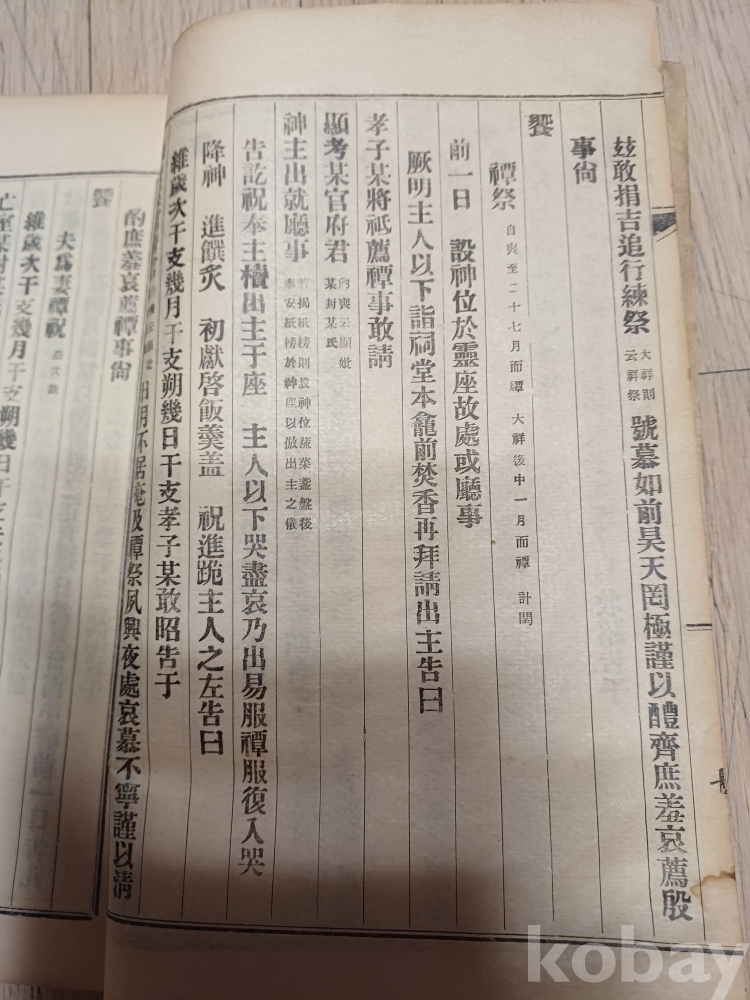 玆敢捐吉追行練祭 大祥則云祥祭 號慕如前昊天罔極謹以醴齊庶羞哀薦殷
事尙
饗
禫祭 自喪至二十七月而禫 大祥後中一月而禫 計閏
前一日 設神位於靈座故處或廳事
厥明主人以下詣祠堂本龕前焚香再拜請出主告曰
孝子某將祗薦禫事敢請
顯考某官府君 內喪云顯妣某封某氏
神主出就廳事 若揭紙榜則設神位蔬菜盞盤後奉安紙榜於神座以倣出主之儀
告訖祝奉主櫝出主于座 主人以下哭盡哀乃出易服禫服復入哭
降神 進饌炙 初獻啓飯羹盖 祝進跪主人之左告曰
維歲次干支幾月干支朔幾日干支孝子某敢昭告于
日月不居奄及禫祭夙興夜處哀慕不寧謹以淸
酌庶羞哀薦禫事尙
饗
夫爲妻禫祝
維歲次干支幾月干支朔幾日干支
亡室某封某
kobay